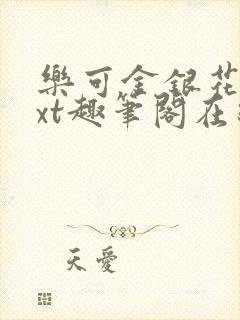 樂可金銀花
xt趣筆閣在
天愛